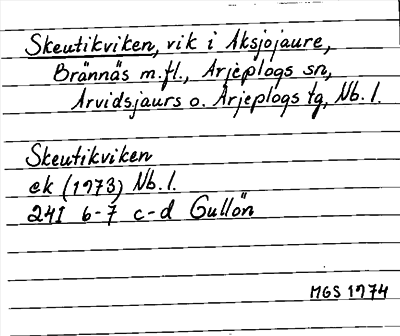 Skeutikviken, vik i Aksjojaure,
Brännäs m.fl., Arjeplogs sn,
Arvidsjaurs o. Arjeplogs tg, Nb. l.
Skeutikviken
ek (1973) Nb. l.
24I 6-7 c-d Gullön
MGS 1974